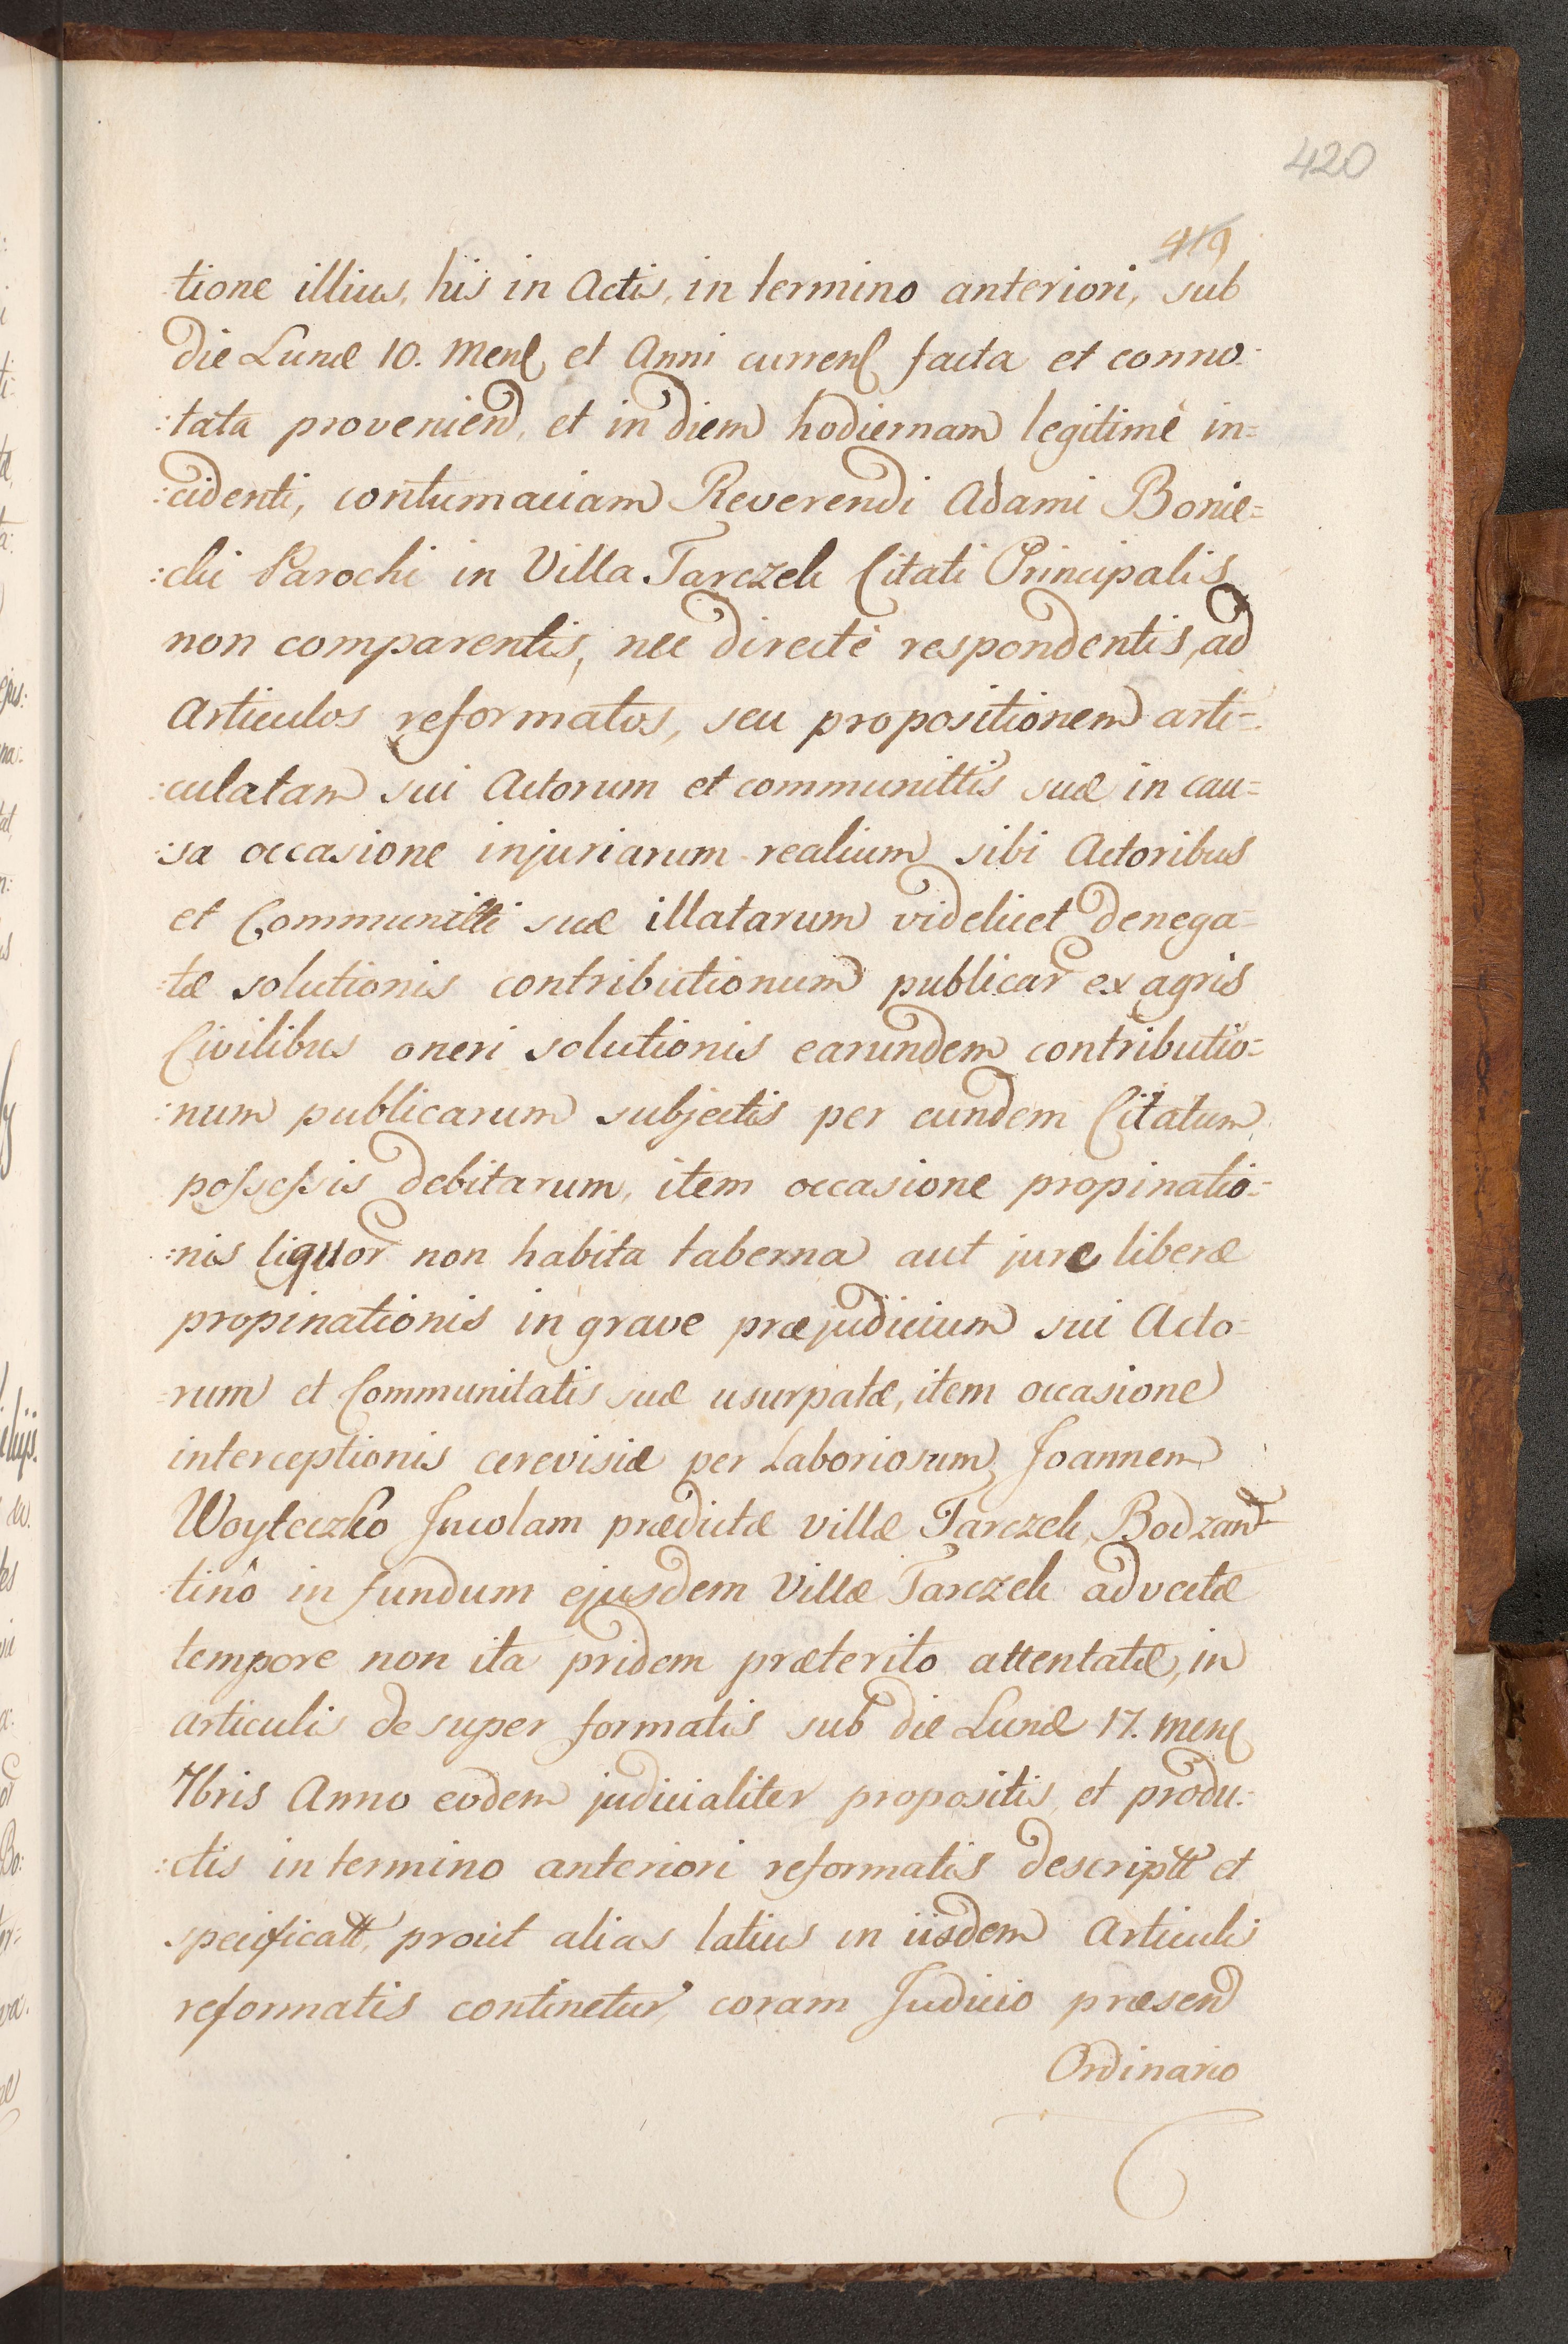 420
419
tione illius, his in Actis, in termino anteriori, sub
die Lunæ 10. Mens et Anni currens facta et conno:
:tata proveniend, et in diem hodiernam legitimè in=
:cidenti, contumaciam Reverendi Adami Bonie=
:cki Parochi in Villa Tarczek Citati Principalis
non comparentis, nec directè respondentis, ad
Articulos reformatos, seu propositionem arti=
:culatam sui Actorum et communittis suæ in cau=
:sa occasione injuriarum realium sibi Actoribus
et Communitti suæ illatarum videlicet denega=
:tæ solutionis contributionum publicar ex agris
Civilibus oneri solutionis earundem contributio=
:num publicarum subjectis per eundem Citatum
possessis debitarum, item occasione propinatio=
:nis liquor non habita taberna aut jure liberæ
propinationis in grave præjudicium sui Acto=
=rum et Communitatis suæ usurpatæ, item occasione
interceptionis cerevisiæ per Laboriosum Joannem
Woyteczko Incolam prædictæ villæ Tarczek, Bodzan=
:tinô in fundum ejusdem Villæ Tarczek advectæ
tempore non ita pridem præterito attentatæ, in
articulis desuper formatis sub die Lunæ 17. mens
7bris Anno eodem judicialiter propositis et produ:
:ctis in termino anteriori reformatis descriptt et
specificatt, prout alias latius in iisdem Articulis
reformatis continetur, coram Judicio præsend
Ordinario